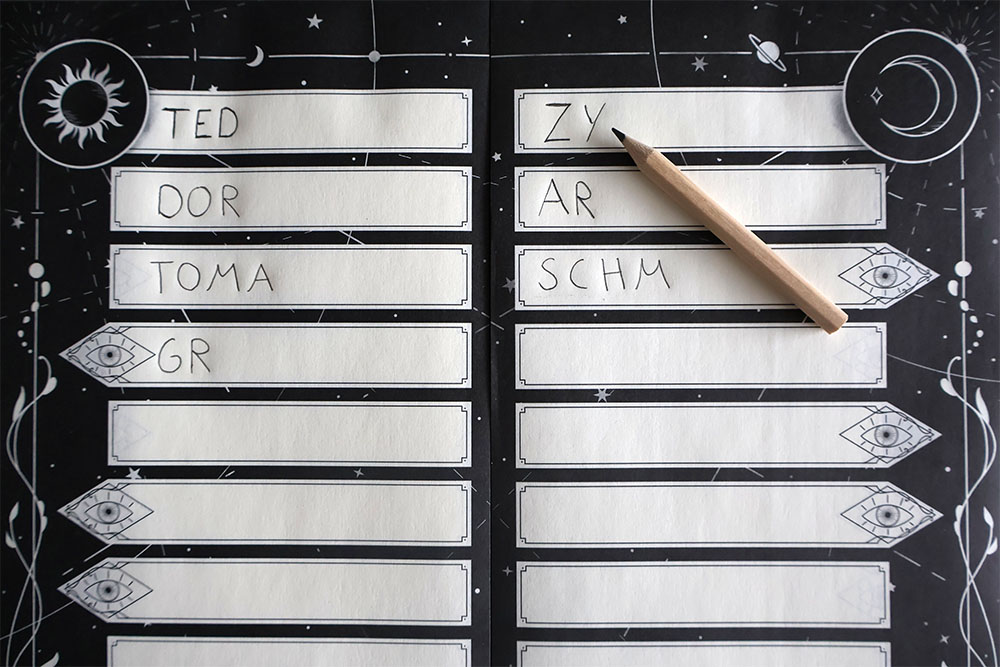 TED
DOR
TOMA
GR
ZY
AR
SCHM